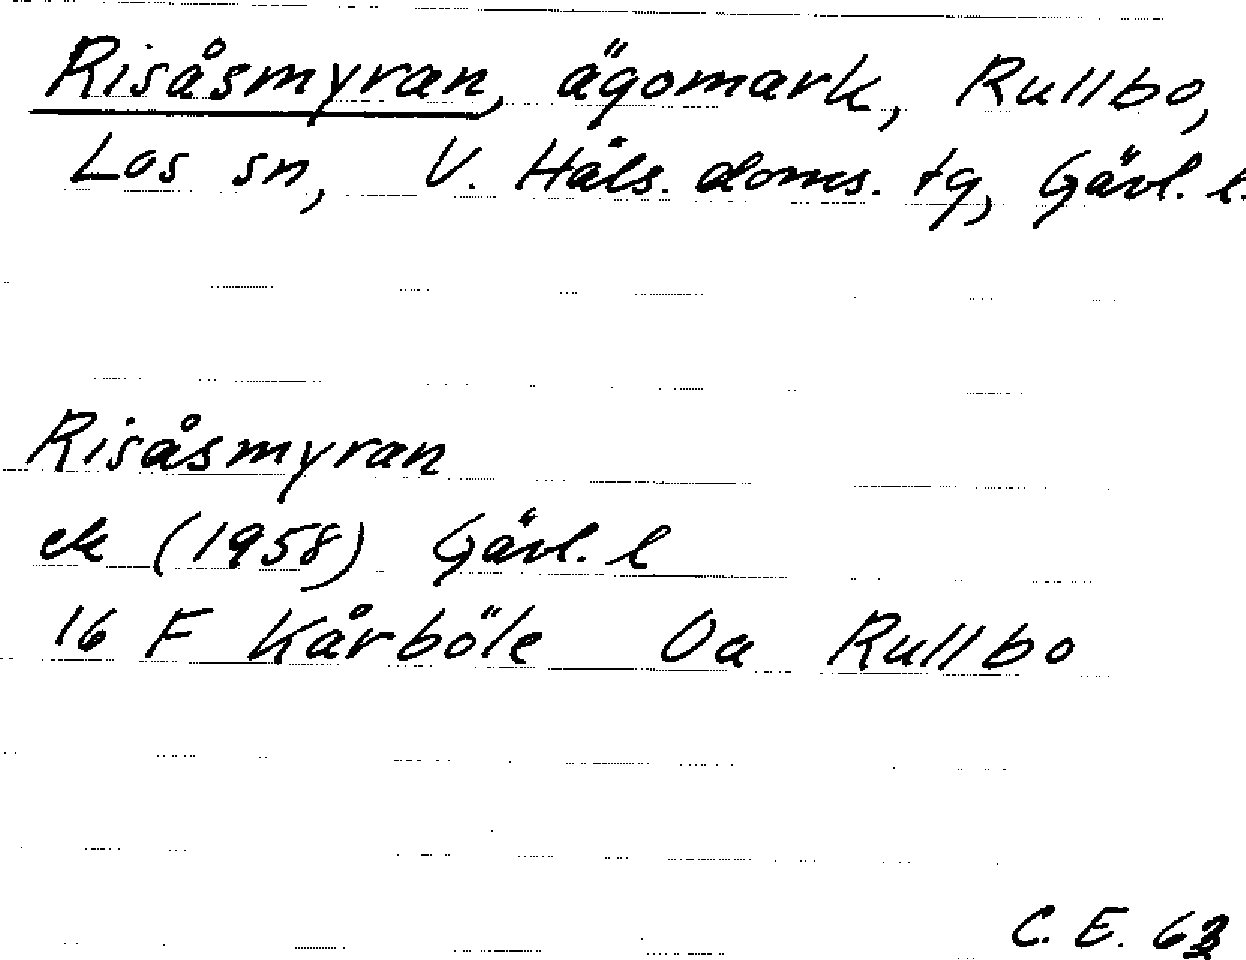 Risåsmyran, ägomark, Rullbo,
Los sn, V. Häls. doms. tg, Gävl. l.
Risåsmyran
ek (1958) Gävl. l
16 F Kårböle Oa Rullbo
C. E. 63